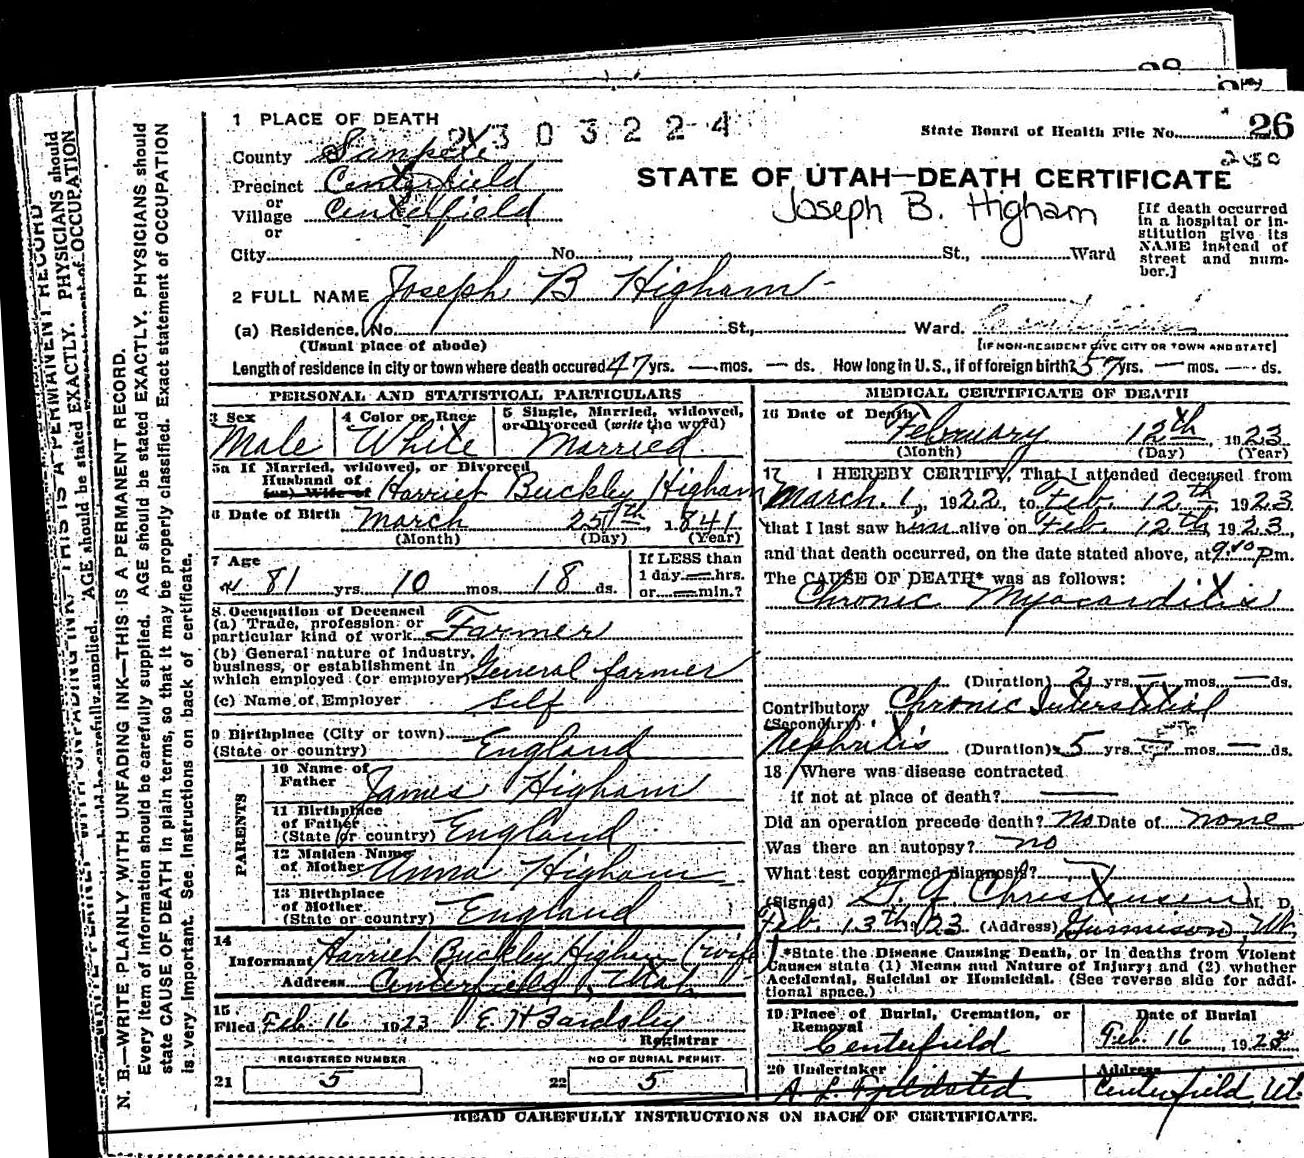 28
27
1 PLACE OF DEATH
2303224
State Board of Health File No. 26
250
County Sanpete
Precinct Centerfield
or
Village Centerfield
or
STATE OF UTAH—DEATH CERTIFICATE
Joseph B. Higham
[If death occurred in a hospital or institution give its NAME instead of street and number.]
City No. St., Ward
2 FULL NAME Joseph B Higham
(a) Residence, No. St., Ward. Centerfield
(Usual place of abode) [IF NON-RESIDENT GIVE CITY OR TOWN AND STATE]
Length of residence in city or town where death occured 47 yrs. — mos. — ds. How long in U.S., if of foreign birth? 57 yrs. — mos. — ds.
PERSONAL AND STATISTICAL PARTICULARS
3 Sex Male
4 Color or Race White
5 Single, Married, widowed, or Divorced (write the word) Married
5a If Married, widowed, or Divorced
Husband of
(or) Wife of Harriet Buckley Higham
6 Date of Birth March 25th, 1841
(Month) (Day) (Year)
7 Age
81 yrs. 10 mos. 18 ds.
If LESS than
1 day — hrs.
or — min.?
8. Occupation of Deceased
(a) Trade, profession or
particular kind of work Farmer
(b) General nature of industry,
business, or establishment in
which employed (or employer) General farmer
(c) Name of Employer Self
9 Birthplace (City or town)
(State or country) England
PARENTS
10 Name of
Father James Higham
11 Birthplace
of Father
(State or country) England
12 Maiden Name
of Mother Anna Higham
13 Birthplace
of Mother
(State or country) England
14
Informant Harriet Buckley Higham (wife)
Address Centerfield, Utah
15
Filed Feb. 16 1923 E. H Bardsley
Registrar
REGISTERED NUMBER
21 5
NO OF BURIAL PERMIT
22 5
MEDICAL CERTIFICATE OF DEATH
16 Date of Death
February 12th, 1923
(Month) (Day) (Year)
17 I HEREBY CERTIFY, That I attended deceased from
March. 1, 1922, to Feb. 12th, 1923
that I last saw him alive on Feb 12th, 1923,
and that death occurred, on the date stated above, at 9.40 p.m.
The CAUSE OF DEATH* was as follows:
Chronic Myocarditis
(Duration) 2 yrs. — mos. — ds.
Contributory Chronic Interstitial
(Secondary)
Nephritis (Duration) 5 yrs. — mos. — ds.
18 Where was disease contracted
if not at place of death? —
Did an operation precede death? No Date of none
Was there an autopsy? no
What test confirmed diagnosis? —
(Signed) Christensen M. D.
Feb. 13th 1923 (Address) Gunnison, Ut.
*State the Disease Causing Death, or in deaths from Violent
Causes state (1) Means and Nature of Injury; and (2) whether
Accidental, Suicidal or Homicidal. (See reverse side for additional space.)
19 Place of Burial, Cremation, or
Removal
Centerfield
Date of Burial
Feb. 16, 1923
20 Undertaker
A. L. Fjeldsted
Address
Centerfield, Ut.
READ CAREFULLY INSTRUCTIONS ON BACK OF CERTIFICATE.
N. B.—WRITE PLAINLY WITH UNFADING INK—THIS IS A PERMANENT RECORD.
Every item of information should be carefully supplied. AGE should be stated EXACTLY. PHYSICIANS should
state CAUSE OF DEATH in plain terms, so that it may be properly classified. Exact statement of OCCUPATION
is very important. See instructions on back of certificate.